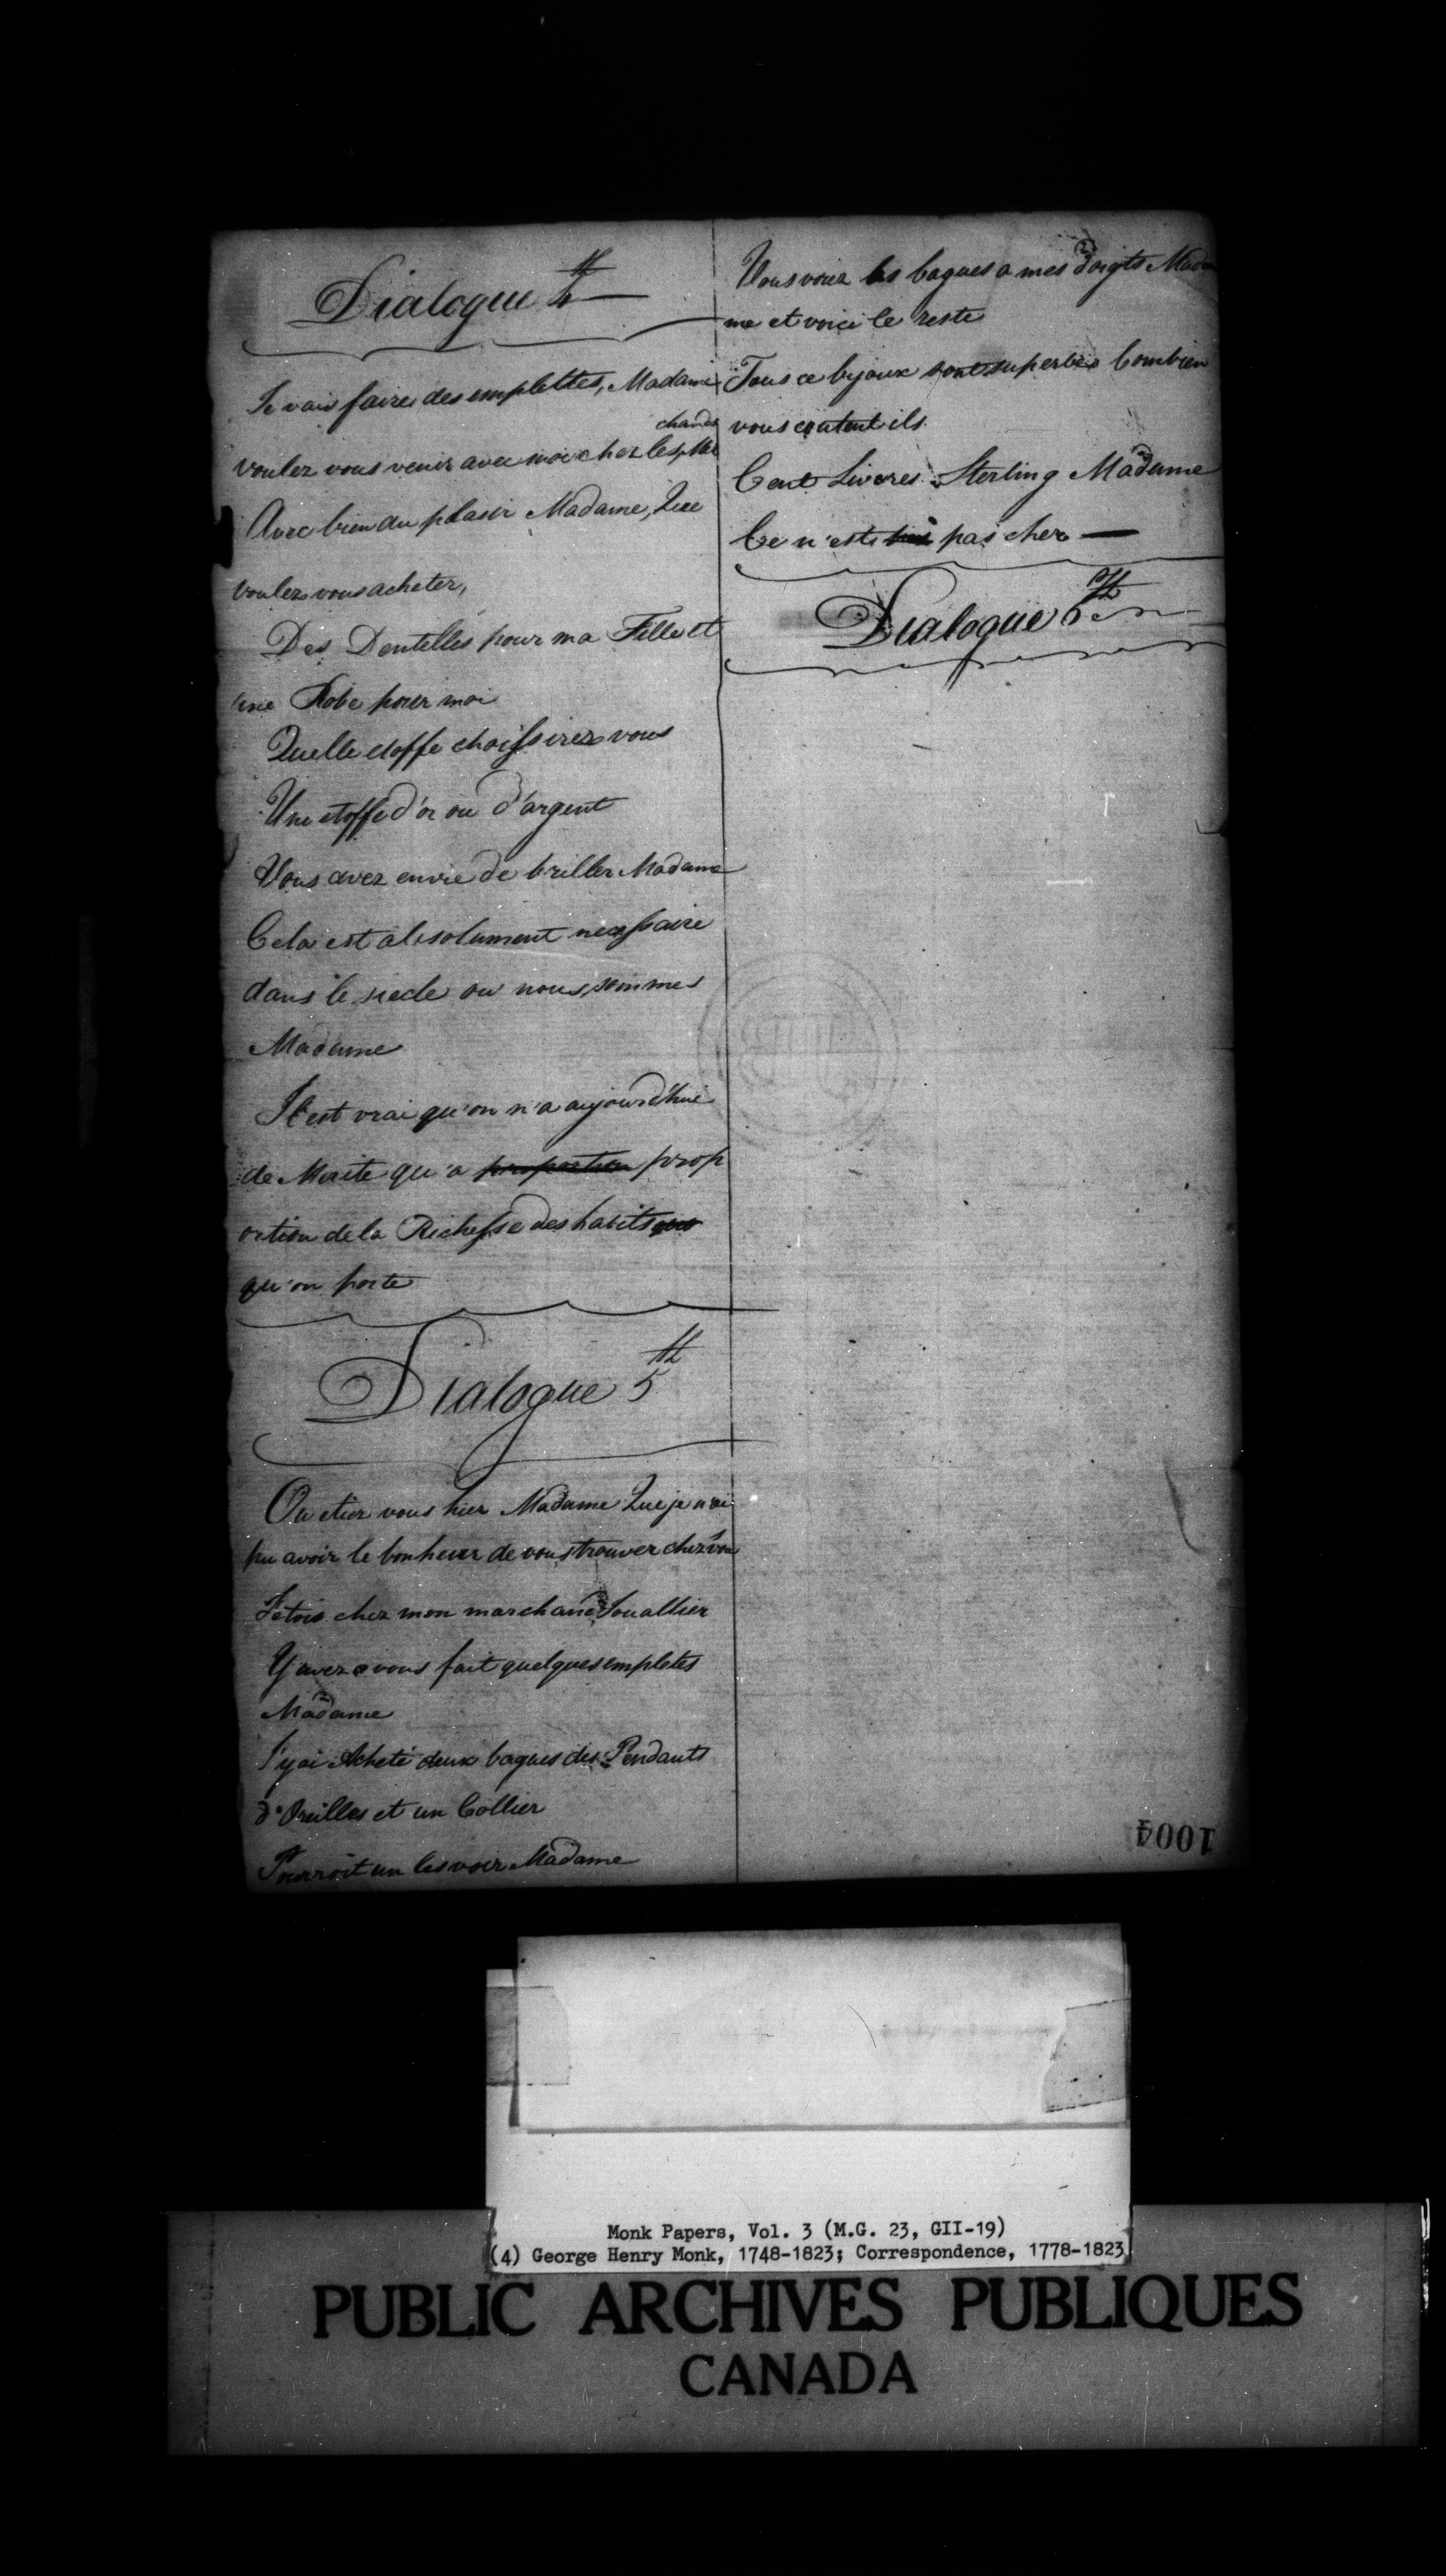 Dialogue 4th
Je vais faire des emplettes, Madame
chands
voulez vous venir avec moi chez les Mar
Avec bien du plasir Madame, Que
voulez vous acheter,
Des Dentelles pour ma Fille et
une Robe pour moi
Quelle etoffe choissirez vous
Une etoffe d'or ou d'argent
Vous avez envie de briller Madame
Cela est absolument necessaire
dans le siecle ou nous sommes
Madame
Il est vrai qu'on n'a aujourd'hui
de Merite qu'a proportion prop
ortion de la Richesse des habits
qu'on porte
Dialogue 5th
Ou etiez vous hier Madame Que je n'ai
pu avoir le bonheur de vous trouver chez vous
J'etois chez mon marchand Jouallier
Y avez vous fait quelques empletes
Madame
J'y ai Acheté deux bagues des Pendants
d'Oreilles et un Collier
Pourroit on les voir Madame
Vous voiez les bagues a mes doigts Mada
me et voici le reste
Tous ce bijoux sont superbes Combien
vous coutent ils
Cent Livres Sterling Madame
Ce n'est pas cher
Dialogue 6th
1004
Monk Papers, Vol. 3 (M.G. 23, GII-19)
(4) George Henry Monk, 1748-1823; Correspondence, 1778-1823
PUBLIC ARCHIVES PUBLIQUES
CANADA